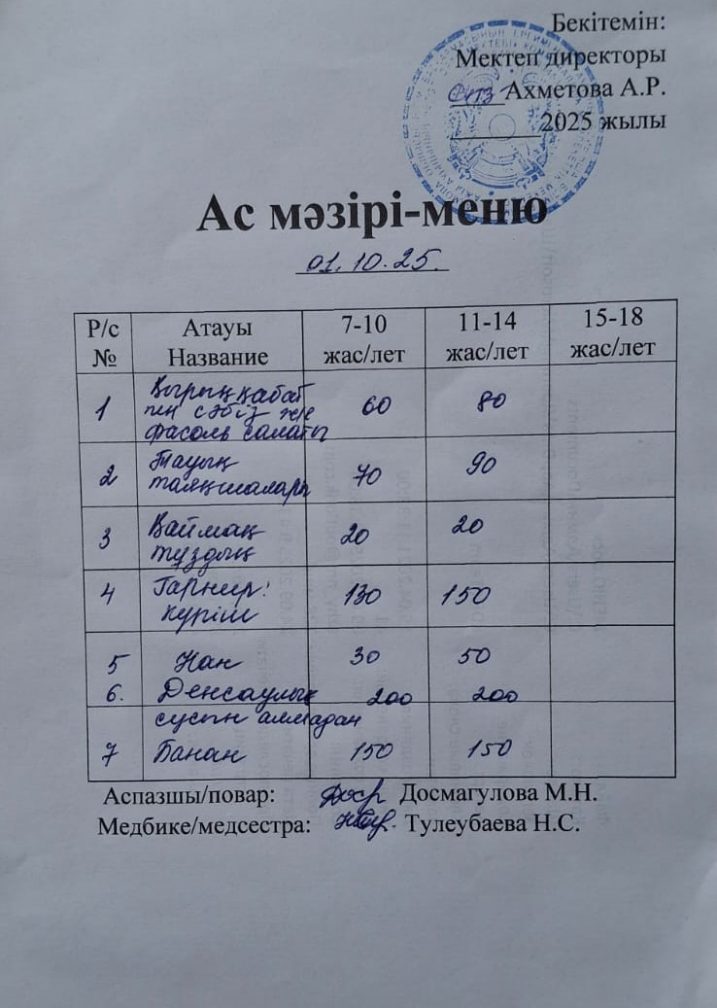 Бекітемін:
Мектеп директоры
Ахметова А.Р.
2025 жылы
Ас мәзірі-меню
01.10.25.
Р/с № Атауы Название 7-10 жас/лет 11-14 жас/лет 15-18 жас/лет
1 Қырыққабат 60 80
пен сәбіз және
фасоль салаты
2 Тауық 70 90
таяқшалары
3 Қаймақ 20 20
тұздық
4 Гарнир: 130 150
күріш
5 Нан 30 50
6. Денсаулық 200 200
сусын алмадан
7 Банан 150 150
Аспазшы/повар: Досмагулова М.Н.
Медбике/медсестра: Тулеубаева Н.С.